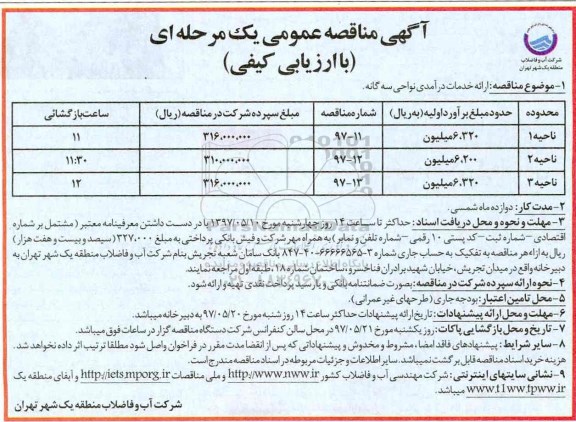 آگهی مناقصه عمومی یک مرحله ای
(با ارزیابی کیفی)
شرکت آب و فاضلاب
منطقه یک شهر تهران
۱-موضوع مناقصه: ارائه خدمات درآمدی نواحی سه گانه.
محدوده حدود مبلغ برآورد اولیه (به ریال) شماره مناقصه مبلغ سپرده شرکت در مناقصه (ریال) ساعت بازگشائی
ناحیه ۱ ۶،۳۲۰میلیون ۹۷-۱۱ ۳۱۶،۰۰۰،۰۰۰ ۱۱
ناحیه ۲ ۶،۲۰۰میلیون ۹۷-۱۲ ۳۱۰،۰۰۰،۰۰۰ ۱۱:۳۰
ناحیه ۳ ۶،۳۲۰میلیون ۹۷-۱۳ ۳۱۶،۰۰۰،۰۰۰ ۱۲
۲-مدت کار: دوازده ماه شمسی.
۳-مهلت و نحوه و محل دریافت اسناد: حداکثر تا ساعت ۱۴ روز چهارشنبه مورخ ۱۳۹۷/۰۵/۱۰ با در دست داشتن معرفینامه معتبر (مشتمل بر شماره
اقتصادی-شماره ثبت-کد پستی ۱۰ رقمی-شماره تلفن و نمابر) به همراه مهر شرکت و فیش بانکی پرداختی به مبلغ ۳۲۷،۰۰۰ (سیصد و بیست و هفت هزار)
ریال به ازاء هر مناقصه به تفکیک به حساب جاری شماره ۳-۶۶۶۶۶۵۶۵-۴۰-۸۴۷ بانک سامان شعبه تجریش بنام شرکت آب و فاضلاب منطقه یک شهر تهران به
دبیرخانه واقع در میدان تجریش، خیابان شهید برادران فناخسرو، ساختمان شماره ۱۸، طبقه اول مراجعه نمایند.
۴-نحوه ارائه سپرده شرکت در مناقصه: بصورت ضمانتنامه بانکی و یا رسید پرداخت نقدی تهیه و ارائه شود.
۵-محل تامین اعتبار: بودجه جاری (طرحهای غیر عمرانی).
۶-مهلت و محل ارائه پیشنهادات: تاریخ ارائه پیشنهادات حداکثر ساعت ۱۴ روز شنبه مورخ ۹۷/۰۵/۲۰ به دبیرخانه میباشد.
۷-تاریخ و محل بازگشایی پاکات: روز یکشنبه مورخ ۹۷/۰۵/۲۱ در محل سالن کنفرانس شرکت دستگاه مناقصه گزار در ساعات فوق میباشد.
۸-سایر شرایط: پیشنهادهای فاقد امضاء، مشروط و مخدوش و پیشنهاداتی که پس از انقضا مدت مقرر در فراخوان واصل شود مطلقا ترتیب اثر داده نخواهد شد.
هزینه خرید اسناد مناقصه قابل برگشت نمیباشد. سایر اطلاعات و جزئیات مربوطه در اسناد مناقصه مندرج است.
۹-نشانی سایتهای اینترنتی: شرکت مهندسی آب و فاضلاب کشور http://www.nww.ir و ملی مناقصات http://iets.mporg.ir و آبفای منطقه یک
www.t1ww.tpww.ir میباشد.
شرکت آب و فاضلاب منطقه یک شهر تهران